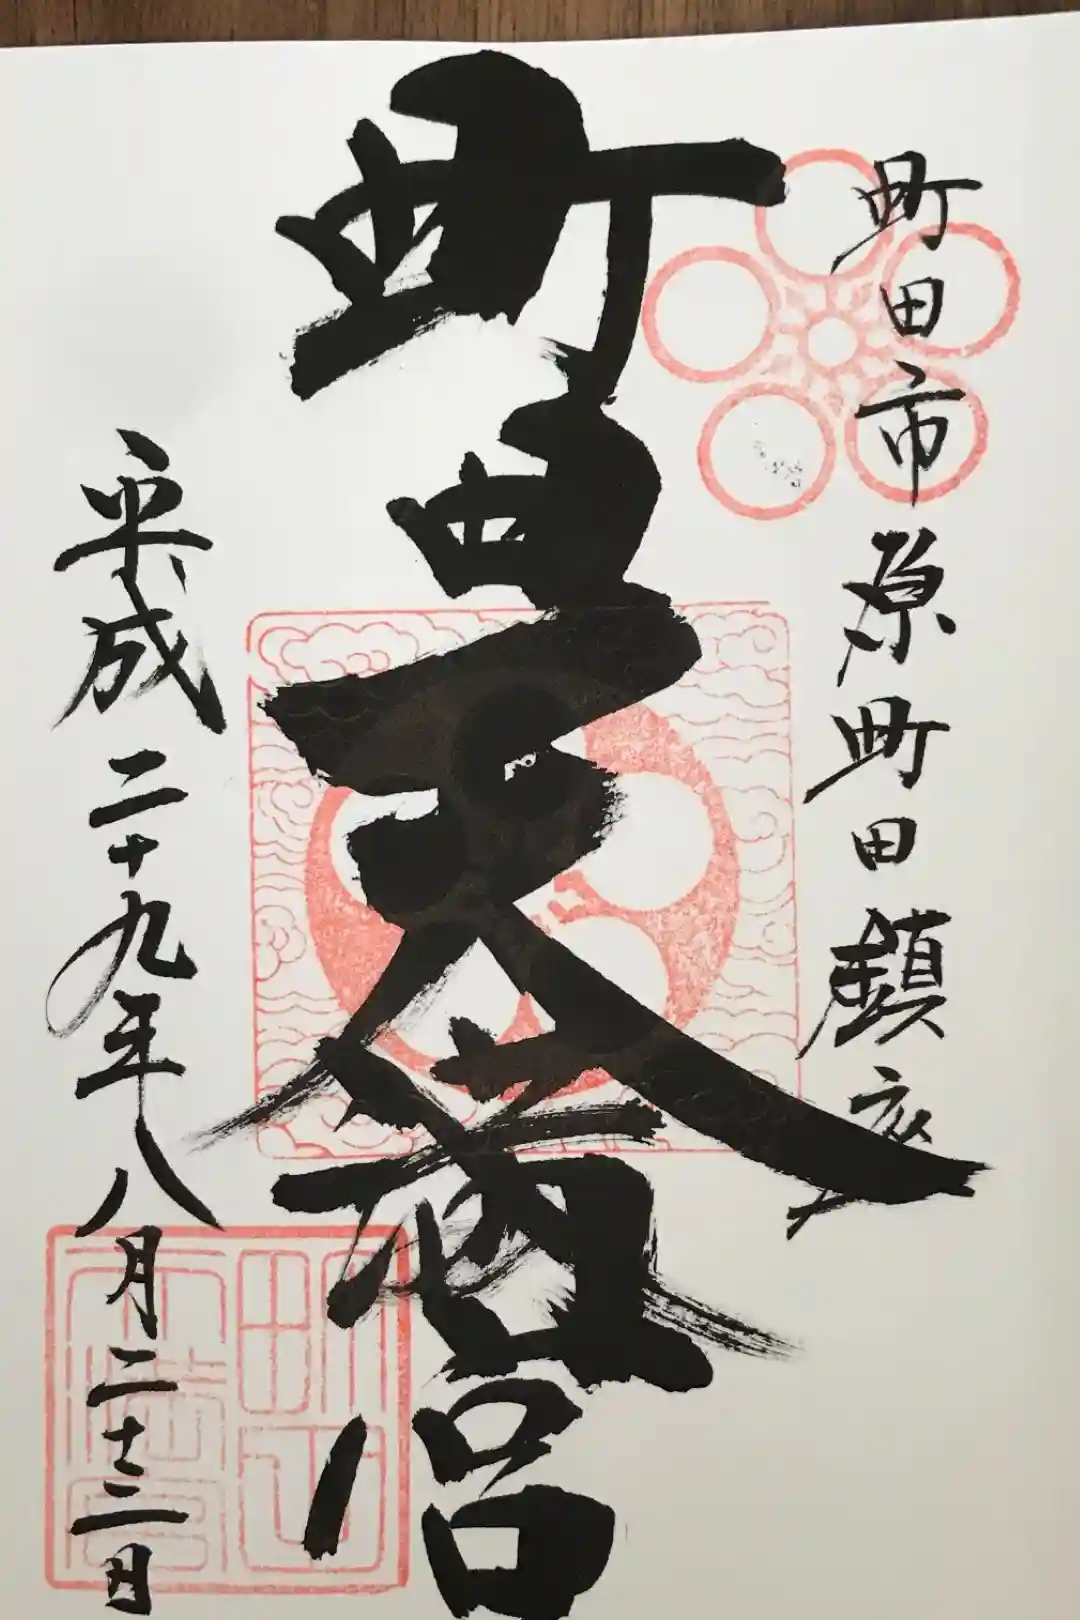 町田市原町田鎮座
町田天満宮
平成二十九年八月二十二日
町田
天満宮